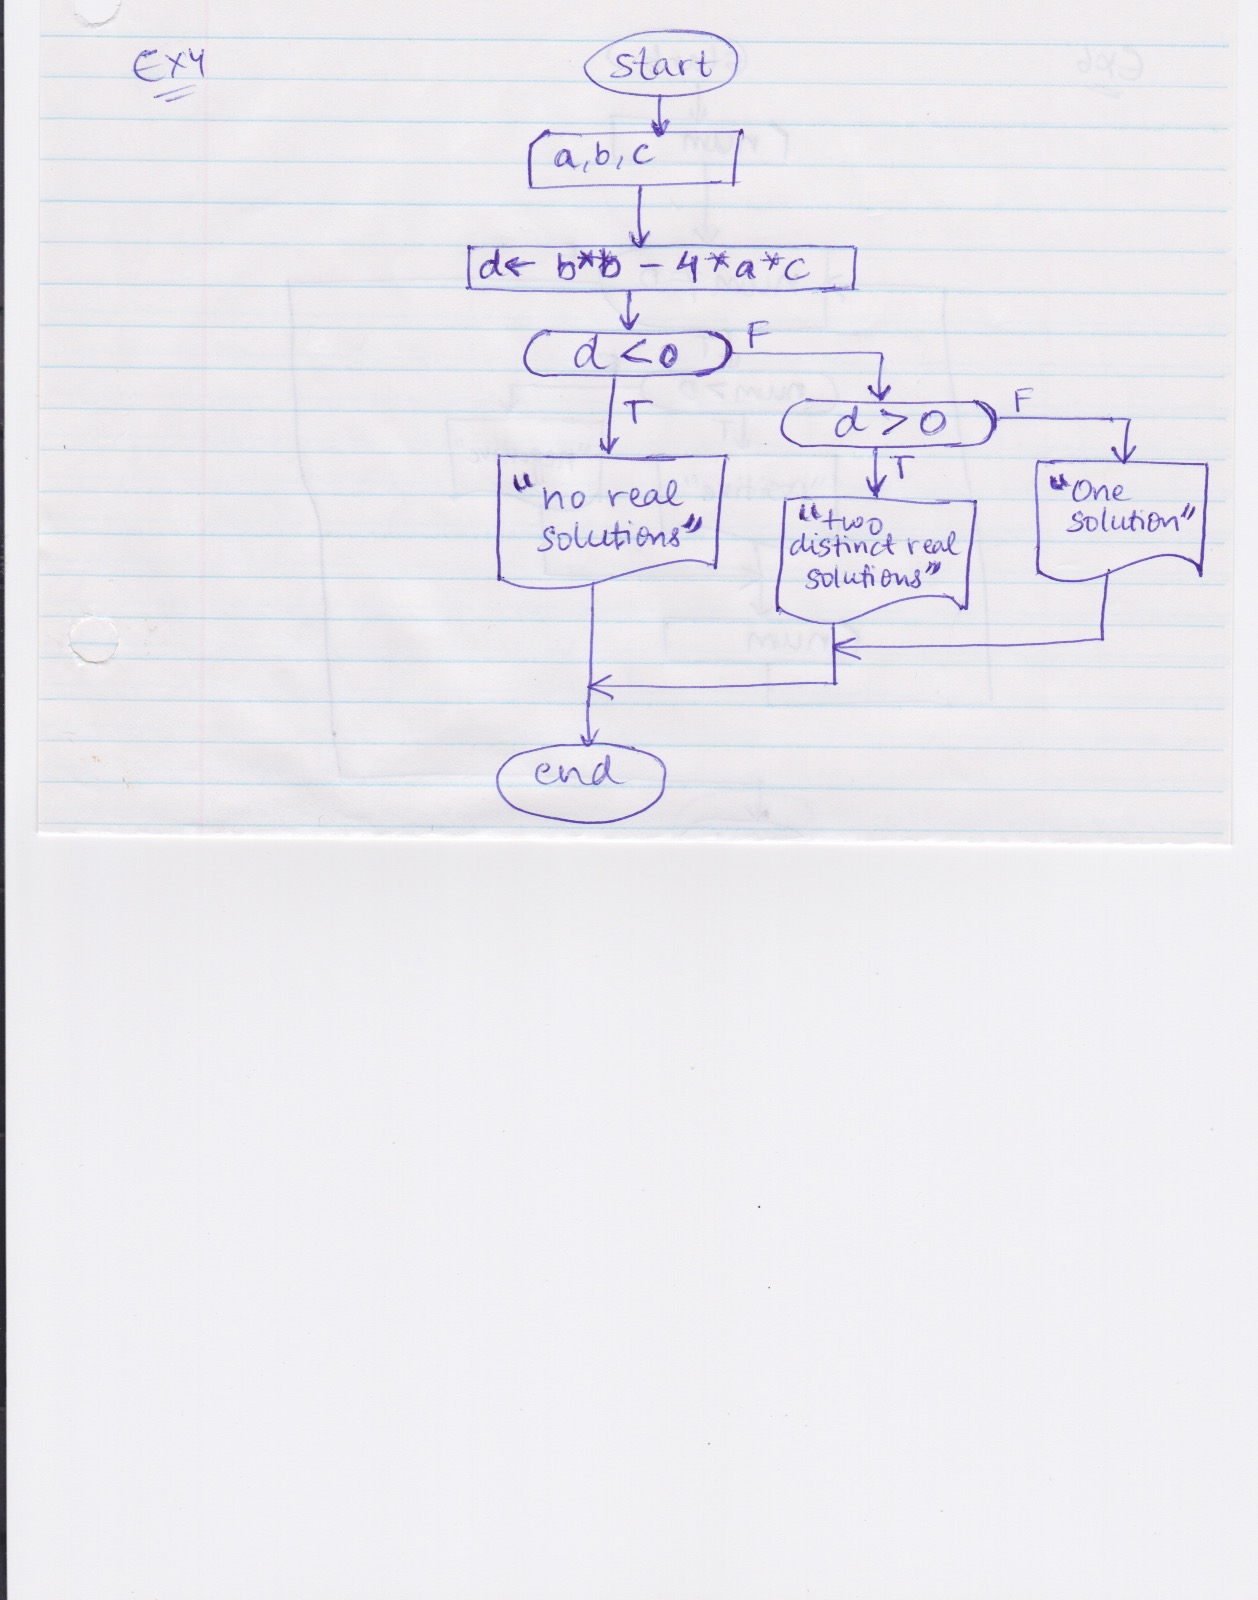 Ex4
start
a, b, c
d← b**b - 4*a*c
d < 0
F
T
d > 0
F
T
"no real
solutions"
"two
distinct real
solutions"
"One
solution"
end